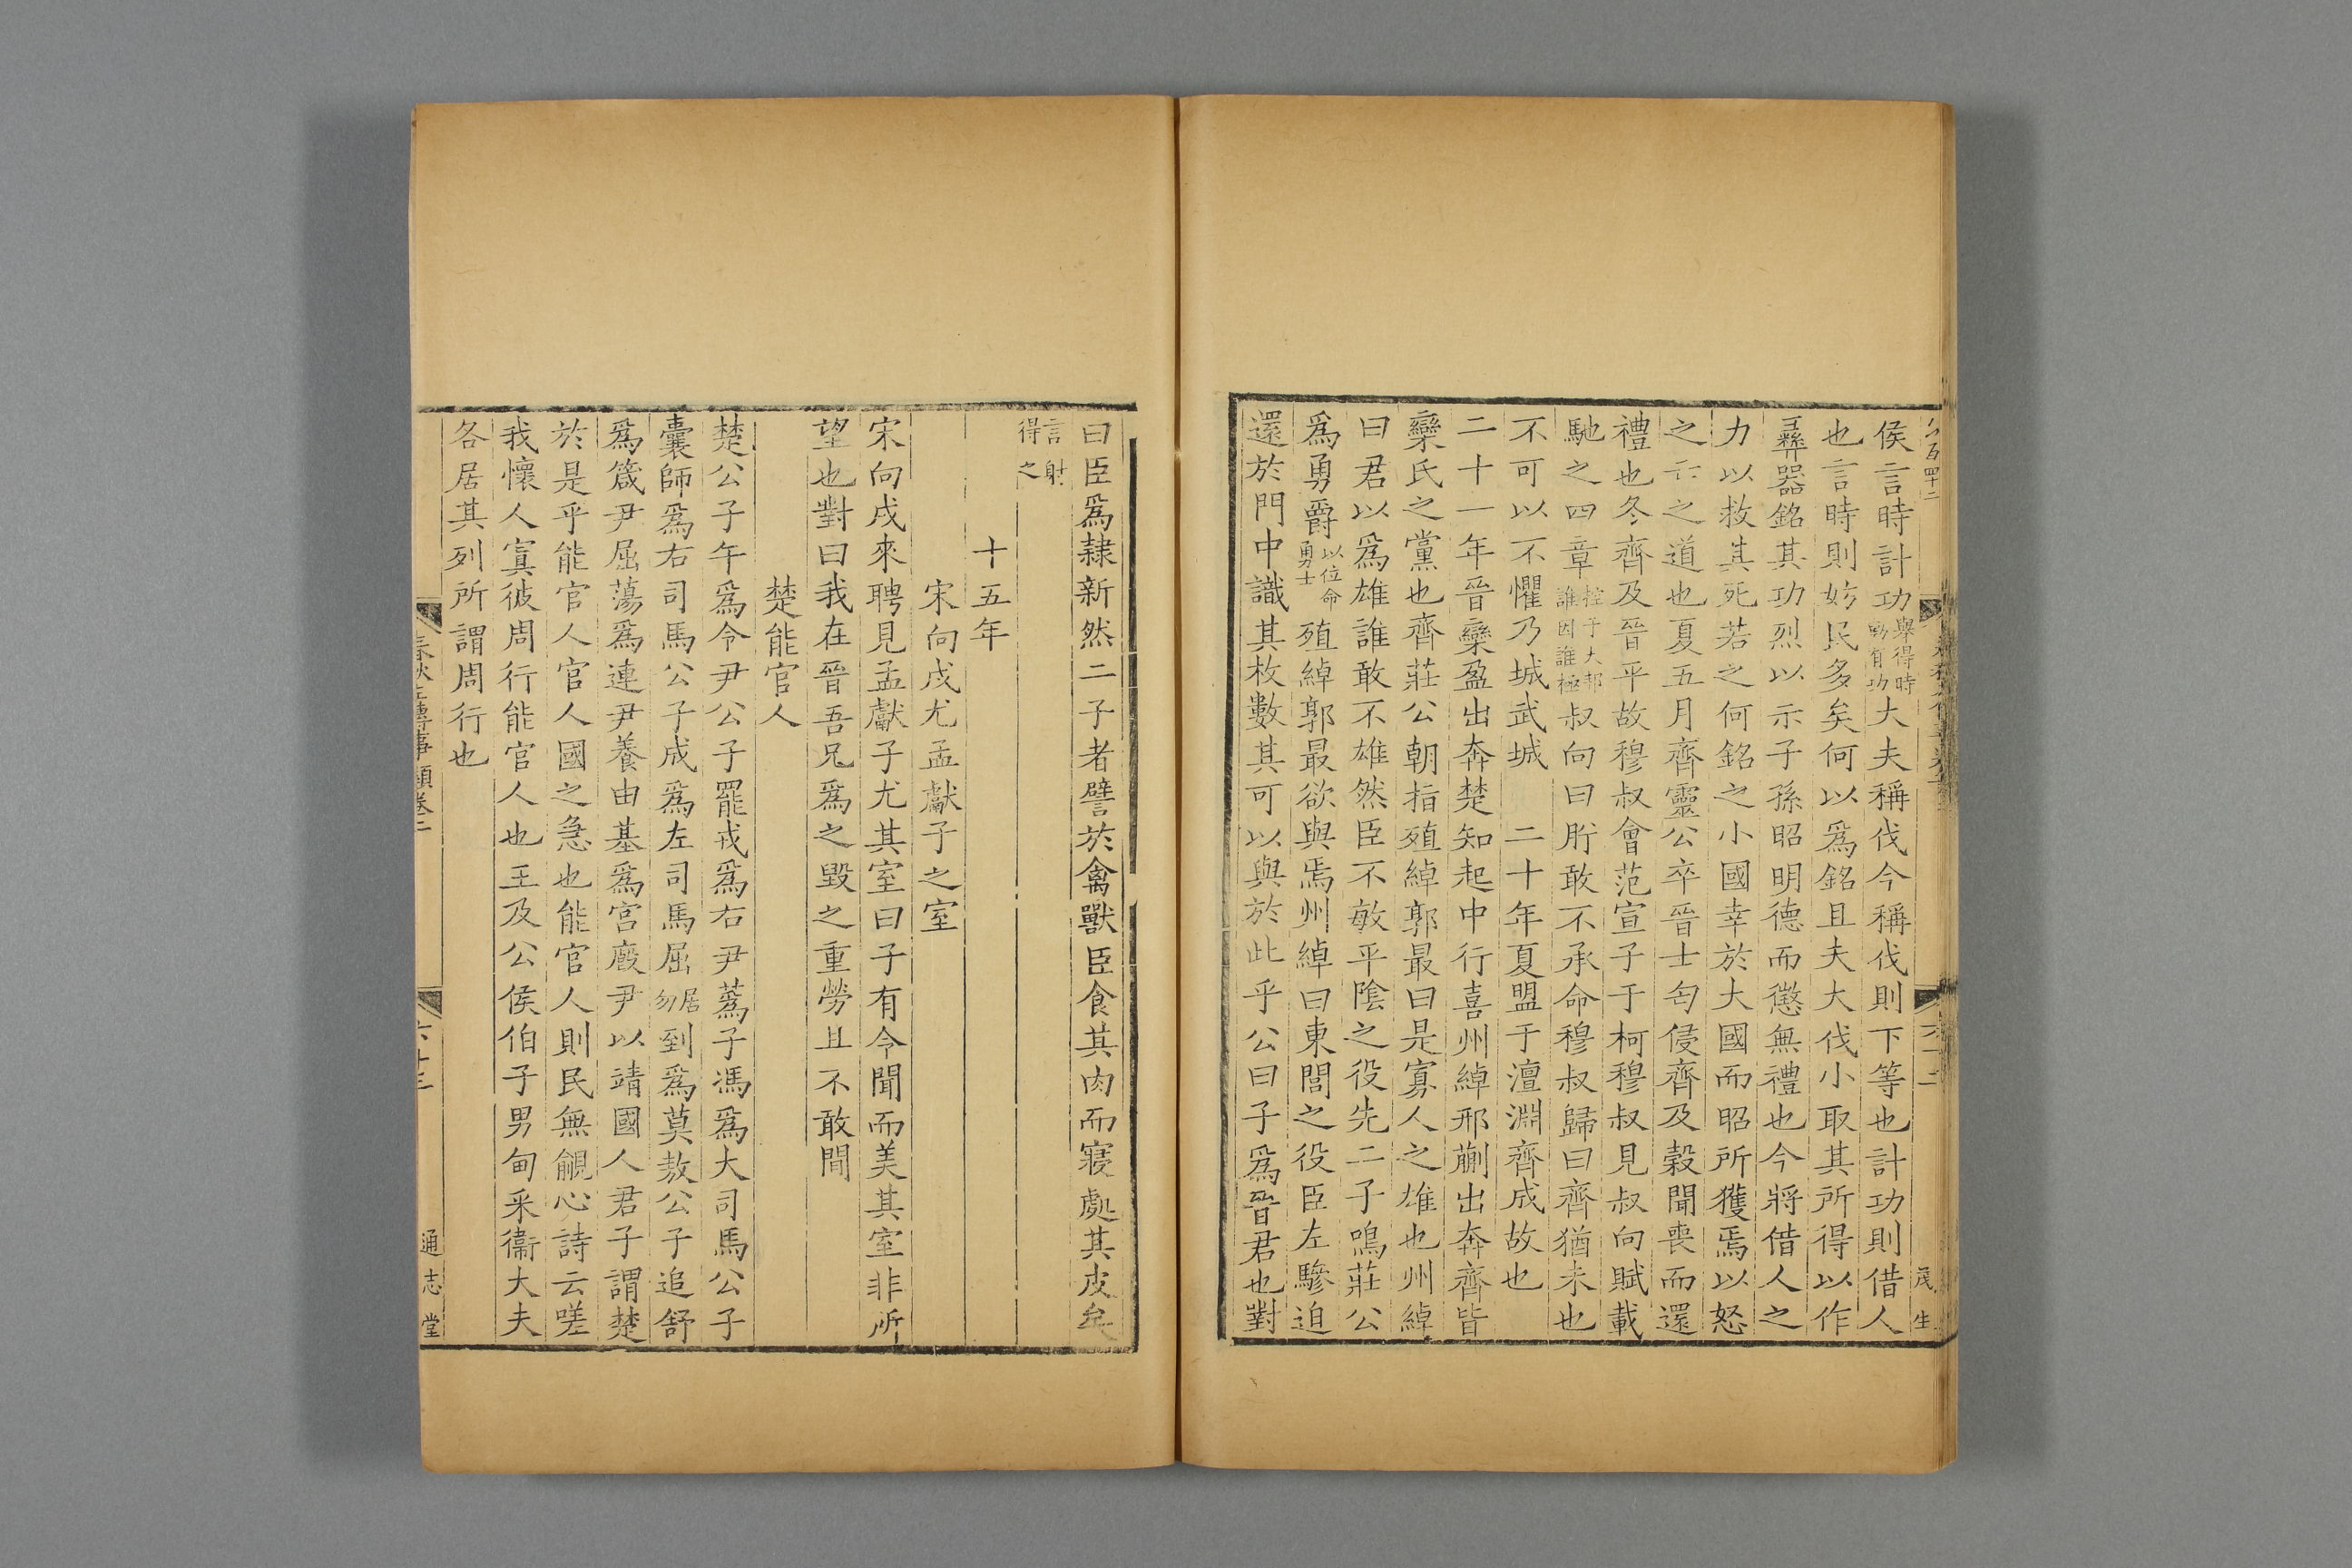 侯言時計功舉得時動有功大夫稱伐今稱伐則下等也計功則借人
也言時則妨民多矣何以爲銘且夫大伐小取其所得以作
彞器銘其功烈以示子孫昭明德而懲無禮也今將借人之
力以救其死若之何銘之小國幸於大國而昭所獲焉以怒
之亡之道也夏五月齊靈公卒晉士匄侵齊及穀聞喪而還
禮也冬齊及晉平故穆叔會范宣子于柯穆叔見叔向賦載
馳之四章控于大邦誰因誰極叔向曰肸敢不承命穆叔歸曰齊猶未也
不可以不懼乃城武城 二十年夏盟于澶淵齊成故也
二十一年晉欒盈出奔楚知起中行喜州綽邢蒯出奔齊皆
欒氏之黨也齊莊公朝指殖綽郭最曰是寡人之雄也州綽
曰君以爲雄誰敢不雄然臣不敏平陰之役先二子鳴莊公
爲勇爵以位命勇士殖綽郭最欲與焉州綽曰東閭之役臣左驂迫
還於門中識其枚數其可以與於此乎公曰子爲晉君也對
茂生
曰臣爲隷新然二子者譬於禽獸臣食其肉而寢處其皮矣
言射得之
十五年
宋向戌尤孟獻子之室
宋向戌來聘見孟獻子尤其室曰子有令聞而美其室非所
望也對曰我在晉吾兄爲之毀之重勞且不敢閒
楚能官人
楚公子午爲令尹公子罷戎爲右尹蔿子馮爲大司馬公子
橐師爲右司馬公子成爲左司馬屈居勿到爲莫敖公子追舒
爲箴尹屈蕩爲連尹養由基爲宮廄尹以靖國人君子謂楚
於是乎能官人官人國之急也能官人則民無覦心詩云嗟
我懷人寘彼周行能官人也王及公侯伯子男甸采衞大夫
各居其列所謂周行也
春秋左傳事類卷二
六十三
通志堂